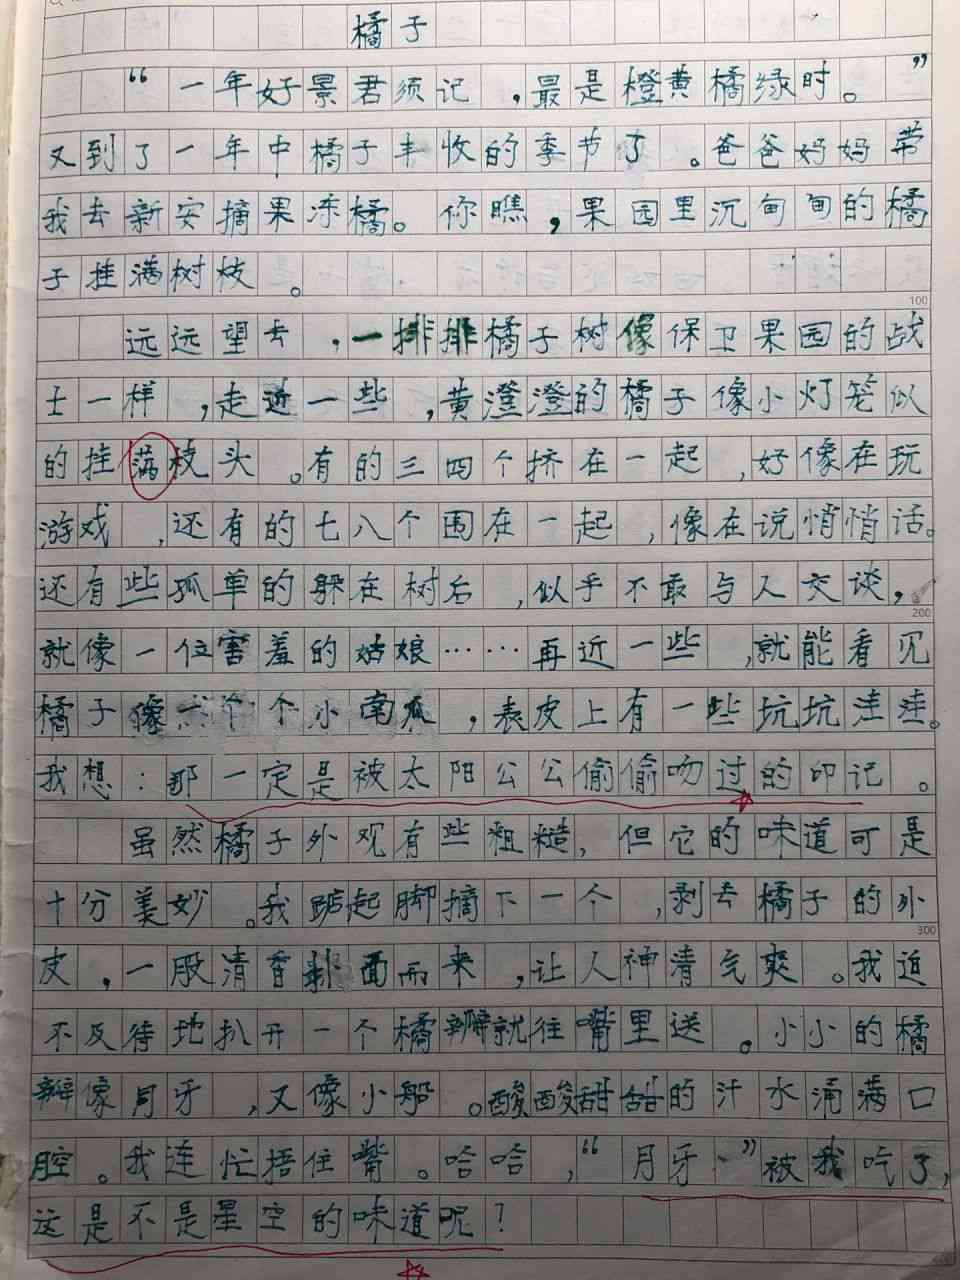 橘子
“一年好景君须记，最是橙黄橘绿时。”
又到了一年中橘子丰收的季节了。爸爸妈妈带
我去新安摘果冻橘。你瞧，果园里沉甸甸的橘
子挂满树枝。
100
远远望去，一排排橘子树像保卫果园的战
士一样，走近一些，黄澄澄的橘子像小灯笼似
的挂满枝头。有的三四个挤在一起，好像在玩
游戏，还有的七八个围在一起，像在说悄悄话。
还有些孤单的躲在树后，似乎不敢与人交谈，
200
就像一位害羞的姑娘……再近一些，就能看见
橘子像一个个小南瓜，表皮上有一些坑坑洼洼。
我想：那一定是被太阳公公偷偷吻过的印记。
虽然橘子外观有些粗糙，但它的味道可是
十分美妙。我踮起脚摘下一个，剥去橘子的外
300
皮，一股清香扑面而来，让人神清气爽。我迫
不及待地扒开一个橘瓣就往嘴里送。小小的橘
瓣像月牙，又像小船。酸酸甜甜的汁水涌满口
腔。我连忙捂住嘴。哈哈，“月牙、”被我吃了，
这是不是星空的味道呢？